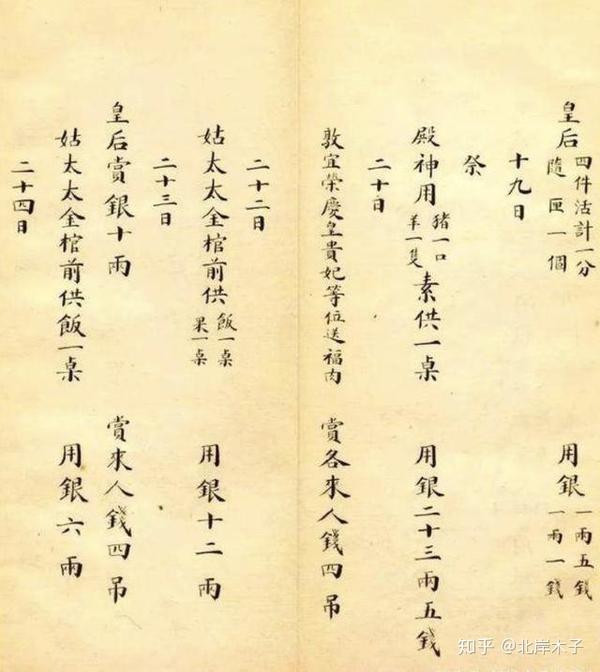 皇后四件活計一分隨匣一個 用銀一兩五錢一兩一錢
十九日
祭
殿神用豬一口羊一隻素供一桌 用銀二十三兩五錢
二十日
敦宜榮慶皇貴妃等位送福肉 賞各來人錢四吊
二十二日
姑太太金棺前供飯一桌果一桌 用銀十二兩
二十三日
皇后賞銀十兩 賞來人錢四吊
姑太太金棺前供飯一桌 用銀六兩
二十四日
知乎 @北岸木子